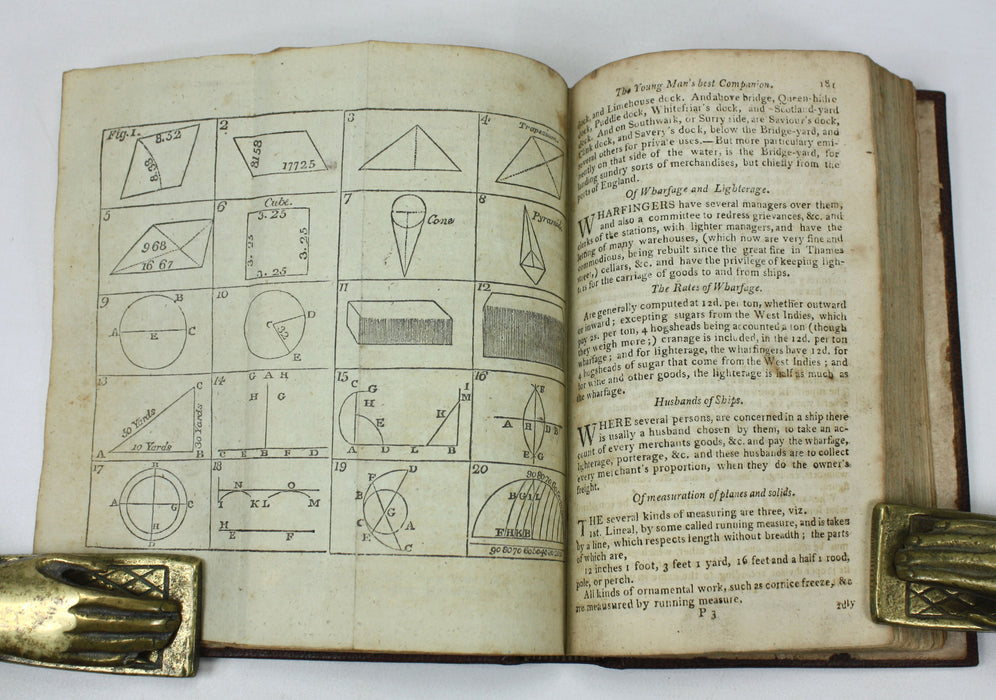 Fig. I.
8.32
8.38
2
8158
17725
3
4
Trapezium
5
968
16 67
6
Cube.
3.25
3.25
3.25
3.25
7
Cone
8
Pyramid
9
B
A E C
10
D
C
32
E
11
12
13
C
50 Yards
30 Yards
10 Yards
A B
14
G A H
H G
C E B F D
15
C G
H
E
A D L B
I
K
M
16
E
A H D B
E G
17
B
A G C
H
D
18
N O
I K L M
H
E F
19
D
F
B
G
A
C
E C
20
90 80
B G I L
F H K B
90 80 70 60 50 40
The Young Man's best Companion. 181
dock, and Limehouse dock. And above bridge, Queen-hithe
dock, Puddle dock, Whitefriar's dock, and Scotland-yard
dock. And on Southwark, or Surry side, are Saviour's dock,
dock, and Savery's dock, below the Bridge-yard, and
several others for private uses.—But more particulary emi-
nently on that side of the water, is the Bridge-yard, for
landing sundry sorts of merchandises, but chiefly from the
ports of England.
Of Wharfage and Lighterage.
WHARFINGERS have several managers over them,
and also a committee to redress grievances, &c. and
clerks of the stations, with lighter managers, and have the
letting of many warehouses, (which now are very fine and
commodious, being rebuilt since the great fire in Thames
street,) cellars, &c. and have the privilege of keeping ligh-
ters for the carriage of goods to and from ships.
The Rates of Wharfage.
Are generally computed at 12d. per ton, whether outward
or inward; excepting sugars from the West Indies, which
pay 2s. per ton, 4 hogsheads being accounted a ton (though
they weigh more;) cranage is included, in the 12d. per ton
wharfage; and for lighterage, the wharfingers have 12d. for
4 hogsheads of sugar that come from the West Indies; and
for wine and other goods, the lighterage is half as much as
the wharfage.
Husbands of Ships.
WHERE several persons, are concerned in a ship there
is usally a husband chosen by them, to take an ac-
count of every merchants goods, &c. and pay the wharfage,
lighterage, porterage, &c. and these husbands are to collect
every merchant's proportion, when they do the owner's
freight.
Of measuration of planes and solids.
THE several kinds of measuring are three, viz.
1st. Lineal, by some called running measure, and is taken
by a line, which respects length without breadth; the parts
of which are,
12 inches 1 foot, 3 feet 1 yard, 16 feet and a half 1 rood,
pole, or perch.
All kinds of ornamental work, such as cornice freeze, &c
are meausured by running measure.
P 3 2dly